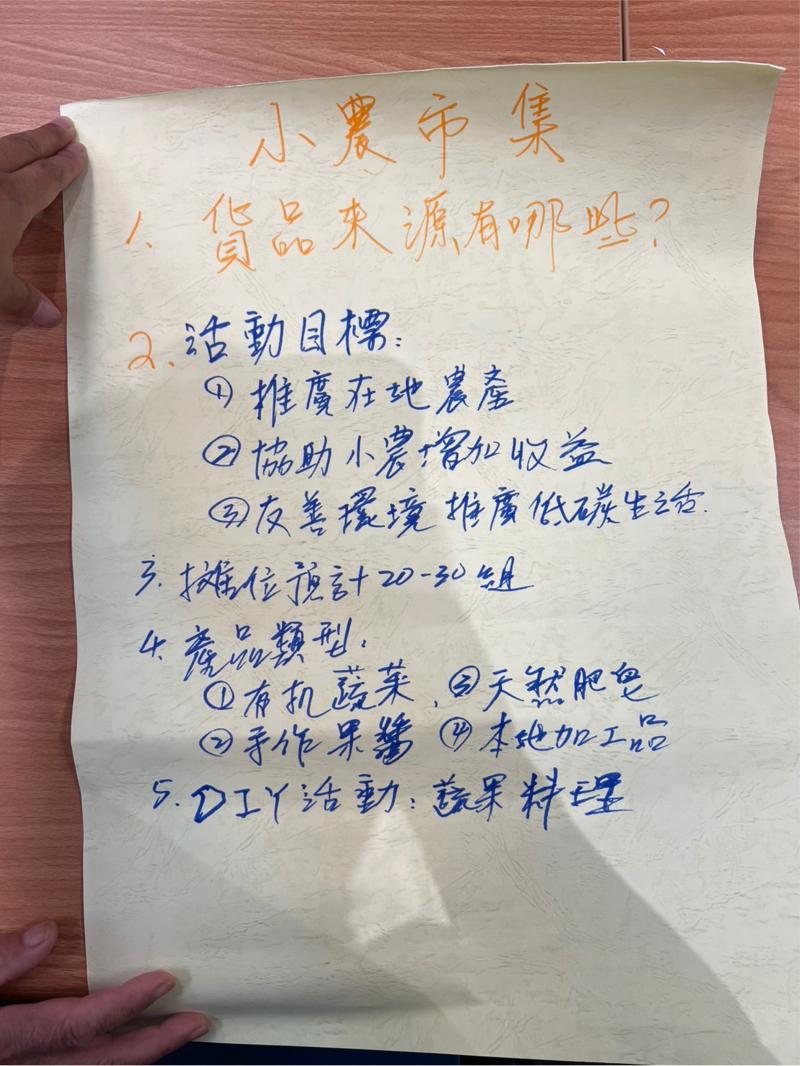 小農市集
1. 貨品來源有哪些?
2. 活動目標:
① 推廣在地農產
② 協助小農增加收益
③ 友善環境 推廣低碳生活.
3. 攤位預計20-30組
4. 產品類型:
① 有机蔬菜、③ 天然肥皂
② 手作果醬 ④ 本地加工品
5. DIY活動:蔬果料理